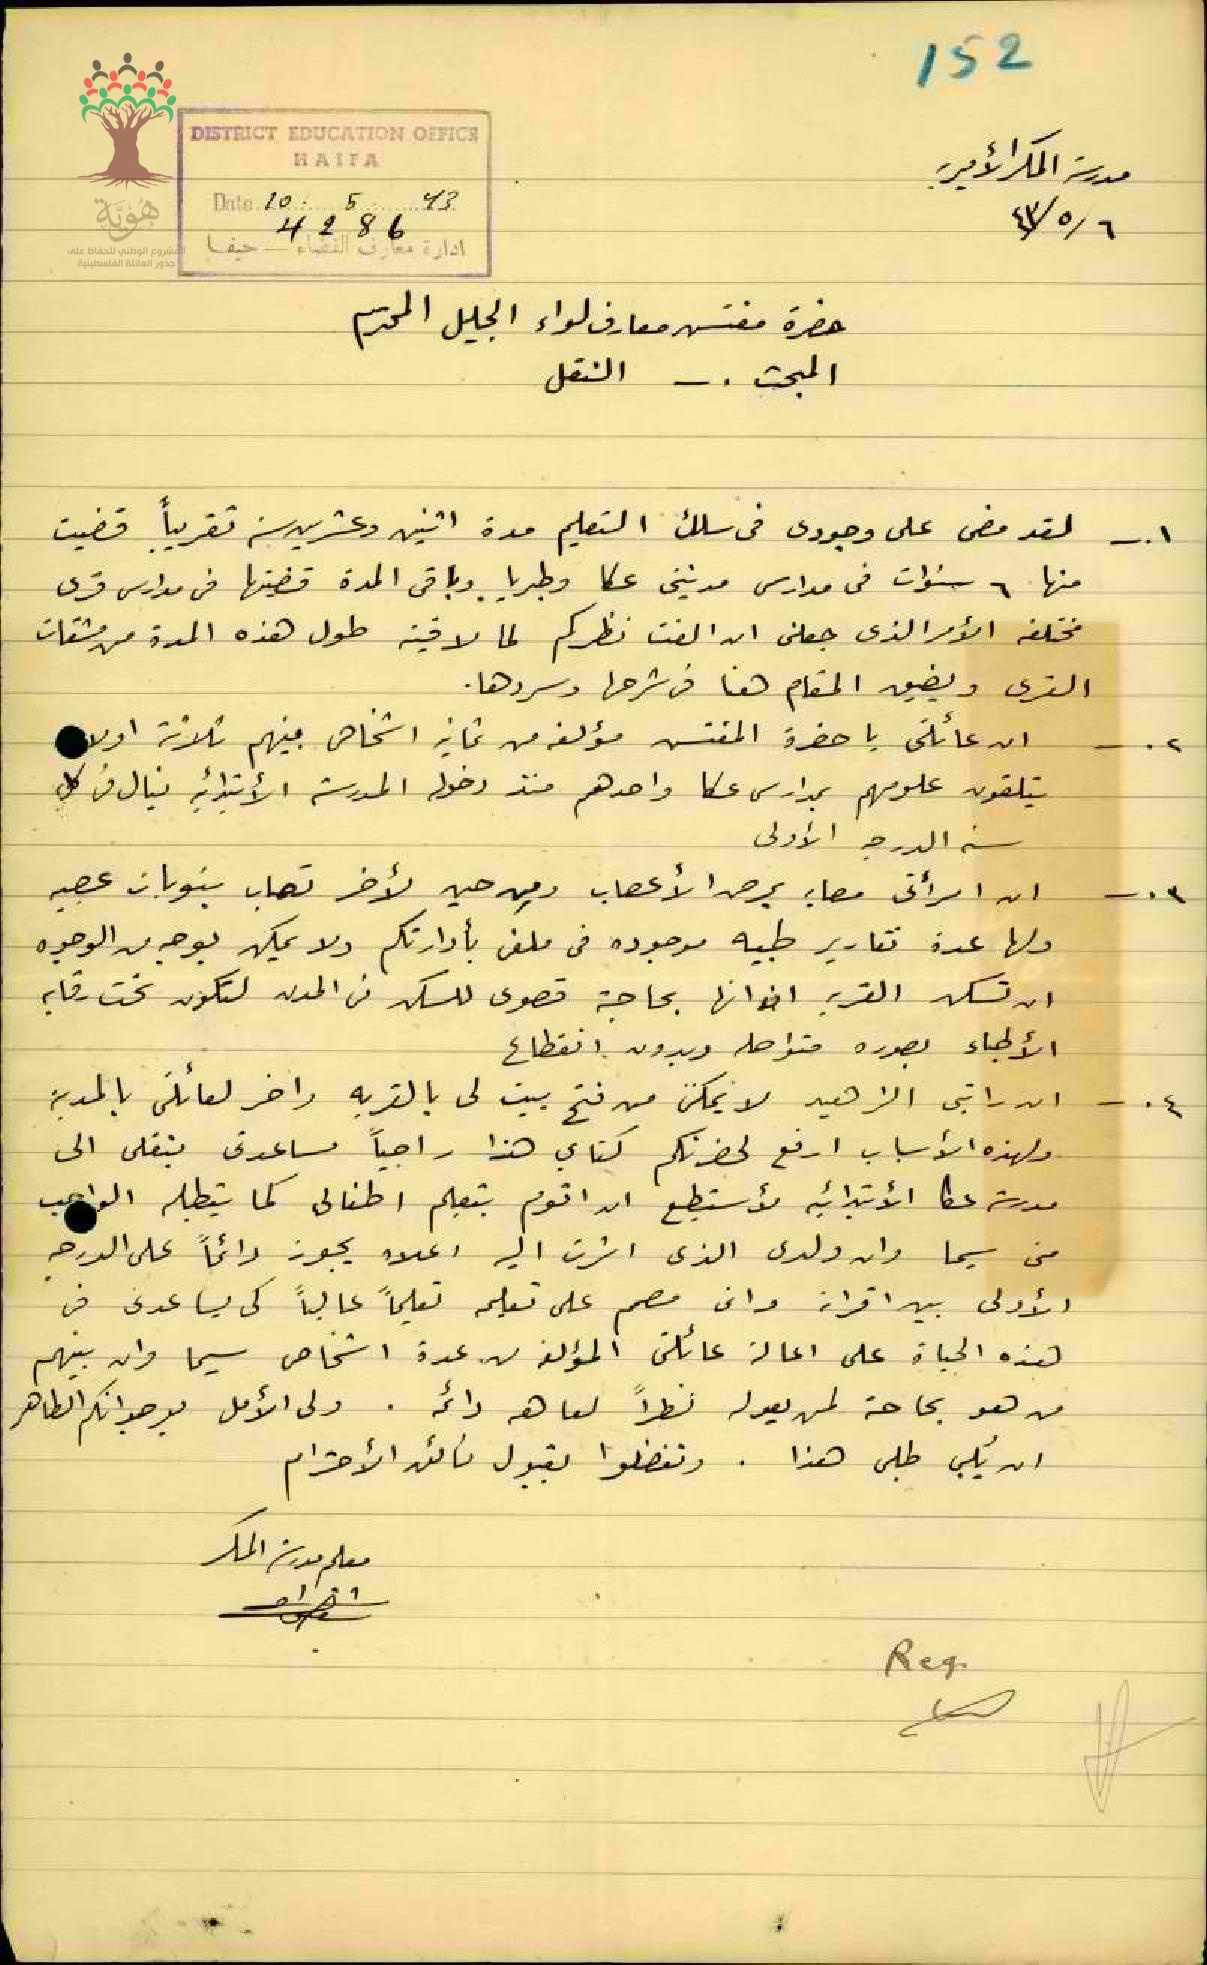 152
DISTRICT EDUCATION OFFICE
HAIFA
Date 10. 5. 43
4286
ادارة معارف القضاء — حيفا
هُوِيَّة
المشروع الوطني للحفاظ على
جذور العائلة الفلسطينية
مدرسة المكر الأميرية
٦/٥/٤٣
حضرة مفتش معارف لواء الجليل المحترم
المبحث .- التنقل
١.- لقد مضى على وجودى فى سلك التعليم مدة اثنين وعشرين سنة تقريباً قضيت
منها ٦ سنوات فى مدارس مدينتى عكا وطبريا وباقى المدة قضيتها فى مدارس قرى
مختلفه الأمر الذى جعلنى ان الفت نظركم لما لاقيته طول هذه المدة من مشقات
القرى ويضيق المقام هنا فى شرحها وسردها.
٢.- ان عائلتى يا حضرة المفتش مؤلفه من ثمانية اشخاص بينهم ثلاثة اولاد
يتلقون علومهم بمدارس عكا واحدهم منذ دخوله المدرسة الأبتدائيه ينال فى كل
سنه الدرجه الأولى
٣.- ان امرأتى مصابه بمرض الأعصاب ومن حين لأخر تصاب بنوبات عصبيه
ولها عدة تقارير طبيه موجوده فى ملفى بأدارتكم ولا يمكن بوجه من الوجوه
ان تسكن القريه انها بحاجة قصوى للسكن فى المدن لتكون تحت رقابه
الأطباء بصوره متواصله وبدون انقطاع
٤.- ان راتبى الزهيد لا يمكننى من فتح بيت لى بالقريه واخر لعائلتى بالمدينه
ولهذه الأسباب ارفع لحضرتكم كتابي هذا راجياً مساعدتى بنقلى الى
مدرسة عكا الأبتدائيه لأستطيع ان اقوم بتعليم اطفالى كما يتطلبه الواجب
منى سيما وان ولدى الذى اشرت اليه اعلاه يحوز دائماً على الدرجه
الأولى بين اقرانه وانى مصمم على تعليمه تعليماً عالياً كى يساعدنى فى
هذه الحياة على اعالة عائلتى المؤلفه من عدة اشخاص سيما وان بينهم
من هو بحاجة لمن يعوله نظراً لعاهه دائمه . ولى الأمل بوجدانكم الطاهر
ان يُلبى طلبى هذا . وتفضلوا بقبول فائق الأحترام
معلم مدرسة المكر
Reg.